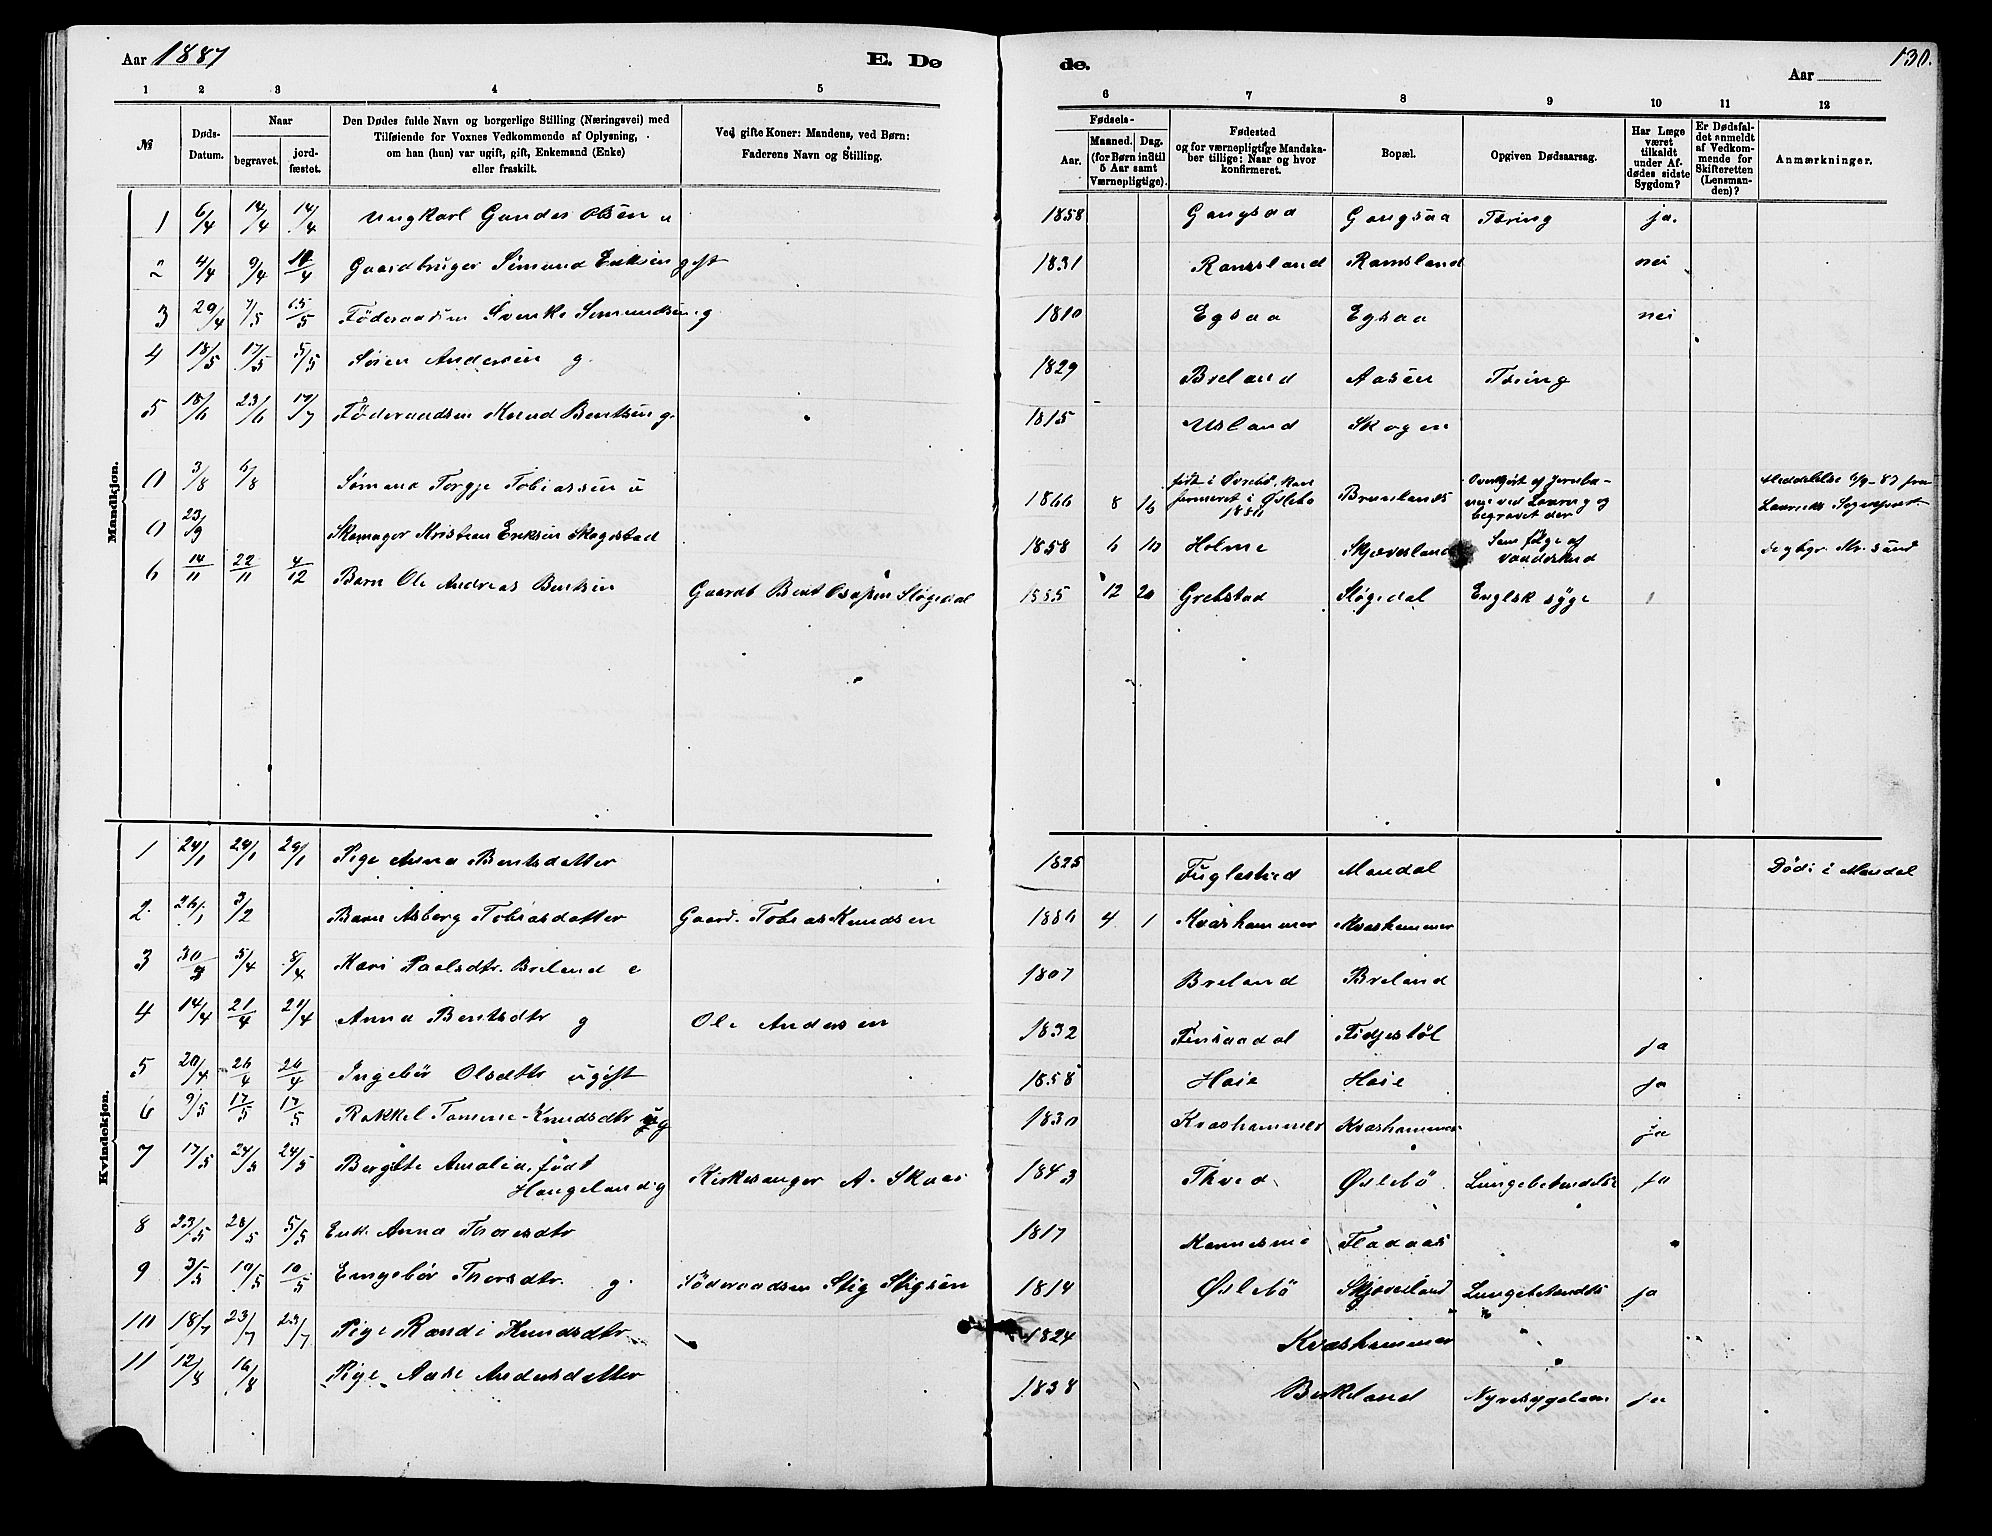 Aar 1887
E. Dø
de.
Aar
130.
1 2 3 4 5 6 7 8 9 10 11 12
№
Døds-Datum.
Naar
begravet.
jord-fæstet.
Den Dødes fulde Navn og borgerlige Stilling (Næringsvei) med
Tilføiende for Voxnes Vedkommende af Oplysning,
om han (hun) var ugift, gift, Enkemand (Enke)
eller fraskilt.
Ved gifte Koner: Mandens, ved Børn:
Faderens Navn og Stilling.
Fødsels-
Aar.
Maaned. Dag.
(for Børn indtil
5 Aar samt
Værnepligtige).
Fødested
og for værnepligtige Mandska-
ber tillige: Naar og hvor
konfirmeret.
Bopæl.
Opgiven Dødsaarsag.
Har Læge
været
tilkaldt
under Af-
dødes sidste
Sygdom?
Er Dødsfal-
det anmeldt
af Vedkom-
mende for
Skifteretten
(Lensman-
den)?
Anmærkninger.
Mandkjøn.
1 6/4 14/4 14/4 Ungkarl Gunder Olsen u 1858 Gangsaa Gangsaa Tæring ja.
2 4/4 9/4 Gaardbruger Sømund Eriksen gift 1831 Ramsland Ramsland nei
3 29/4 7/5 15/5 Föderaadsm Svenke Sømundsen g 1810 Egsaa Egsaa nei
4 18/5 17/5 5/5 Sören Andersen g. 1829 Breland Aasen Tæring
5 18/6 23/6 17/7 Föderaadsm Knud Bentsen g. 1815 Usland Skogen
0 3/8 6/8 Sømand Torgje Tobiassen u 1866 8 16 født i Øvrebö, kon
firmeret i Øslebø
Overkjört af Jernba-
ne ved Laurvig og
begravet der
Meddelelse 6/9-87 fra
0 23/9 Skomager Kristian Eriksen Skagestad 1858 6 10 Holme Skjævesland Som følge af
6 14/11 22/11 4/12 Barn Ole Andreas Bentsen Gaardb Bent Slögedal 1885 12 20 Grebstad Slögedal Englsk syge
Kvindekjøn.
1 24/1 29/1 29/1 Pige Anna Bentsdatter 1825 Fuglestved Mandal Död i Mandal
2. 26/1 3/2 Barn Asberg Tobiasdatter Gaard. Tobias Knudsen 1886 4 1 Kvashammer Kvashammer
3 30/3 5/4 8/4 Kari Paalsdtr. Breland e 1807 Breland Breland
4 14/4 21/4 21/4 Anna Bentsdtr g Ole Andersen 1832 Finsaadal Fidjestöl ja
5 20/4 26/4 26/4 Ingebör Olsdtr ugift 1858 Høie Høie ja
6 9/5 17/5 17/5 Rakkel Tomine Knudsdtr ug 1830 Kvashammer Kvashammer ja
7 17/5 24/5 24/5 Bergitte Amalia, født
Haugeland g Kirkesanger A. Skaar 1843 Tved Øslebö Lungebetændelse ja
8 23/5 28/5 5/5 Enk. Anna Thoresdtr 1817 Kennesmo Fladaas
9 3/5 10/5 10/5 Engebör Thorsdtr. g. Föderaadsm Stig Stigsen 1814 Øslebö Skjævesland Lungebetændelse ja
10 18/7 23/7 23/7 Pige Randi Knudsdtr 1824 Kvashammer
11 12/8 16/8 Pige Aase Andersdatter 1838 Birkeland ja